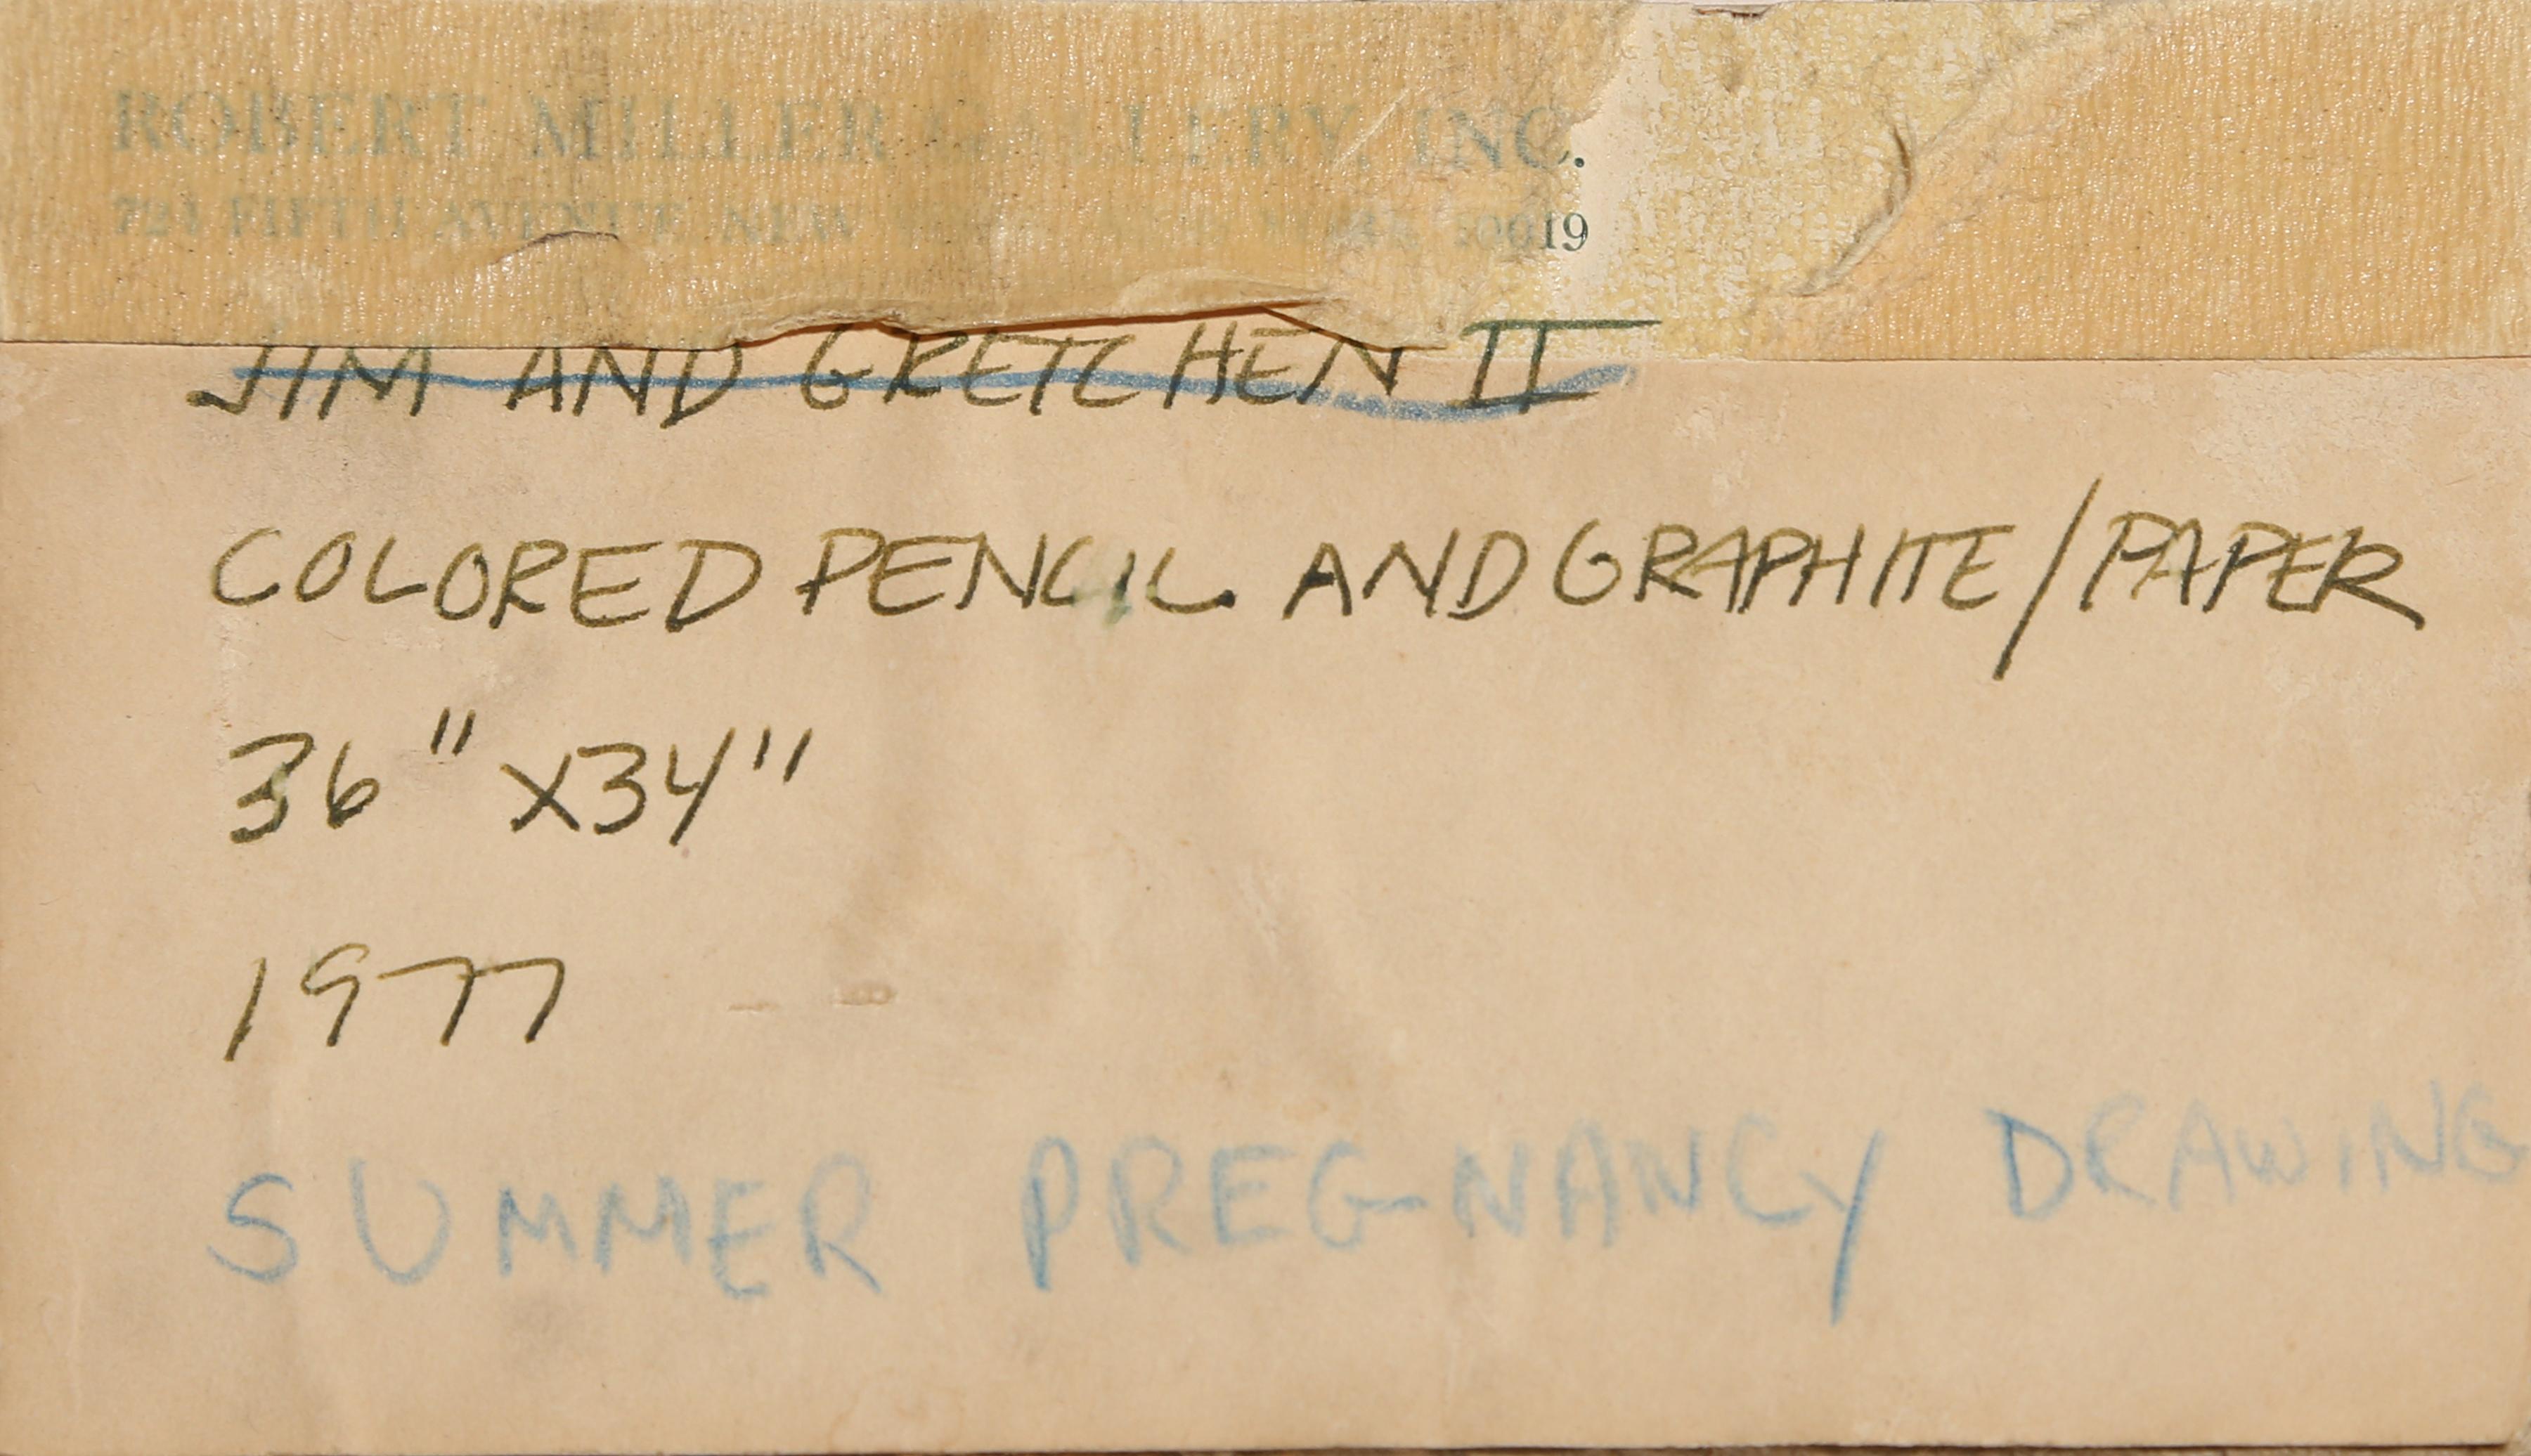 ROBERT MILLER GALLERY, INC.
724 FIFTH AVENUE NEW 10019
JIM AND GRETCHEN II
COLORED PENCIL AND GRAPHITE/PAPER
36" X34"
1977
SUMMER PREGNANCY DRAWING